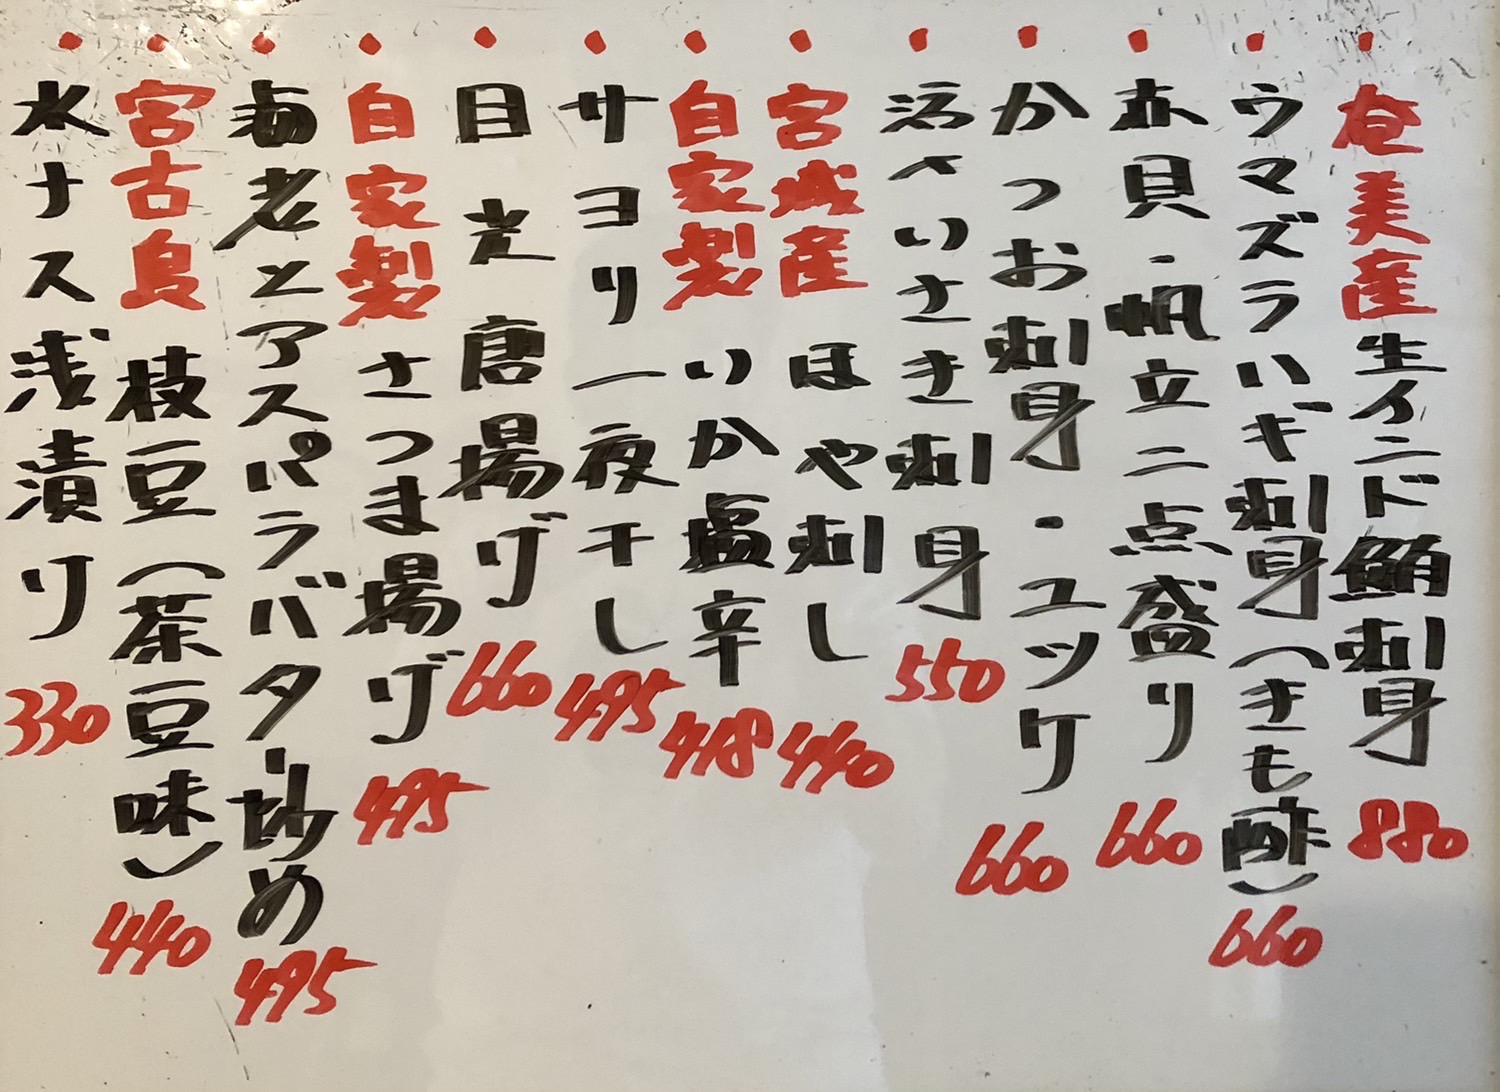 ・奄美産生インド鮪刺身 880
・ウマズラハギ刺身(きも酢) 660
・赤貝・帆立二点盛り 660
・かつお刺身・ユッケ 660
・活〆いさき刺身 550
・宮城産 ほや刺し 440
・自家製 いか塩辛 418
・サヨリ一夜干し 495
・目光唐揚げ 660
・自家製 さつま揚げ 495
・海老とアスパラバター炒め 495
・宮古島 枝豆(茶豆味) 440
・水ナス浅漬り 330